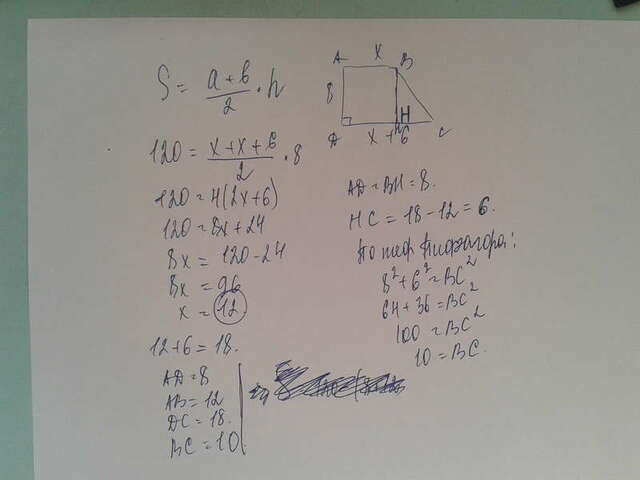 S = a+b/2 · h
120 = x+x+6/2 · 8
120 = 4(2x+6)
120 = 8x+24
8x = 120-24
8x = 96
x = 12.
12+6 = 18.
AD = 8
AB = 12
DC = 18.
BC = 10
A x B
8
H
D x+6 C
AD = BH = 8.
HC = 18-12 = 6.
По теор Пифагора:
8²+6² = BC²
64+36 = BC²
100 = BC²
10 = BC.